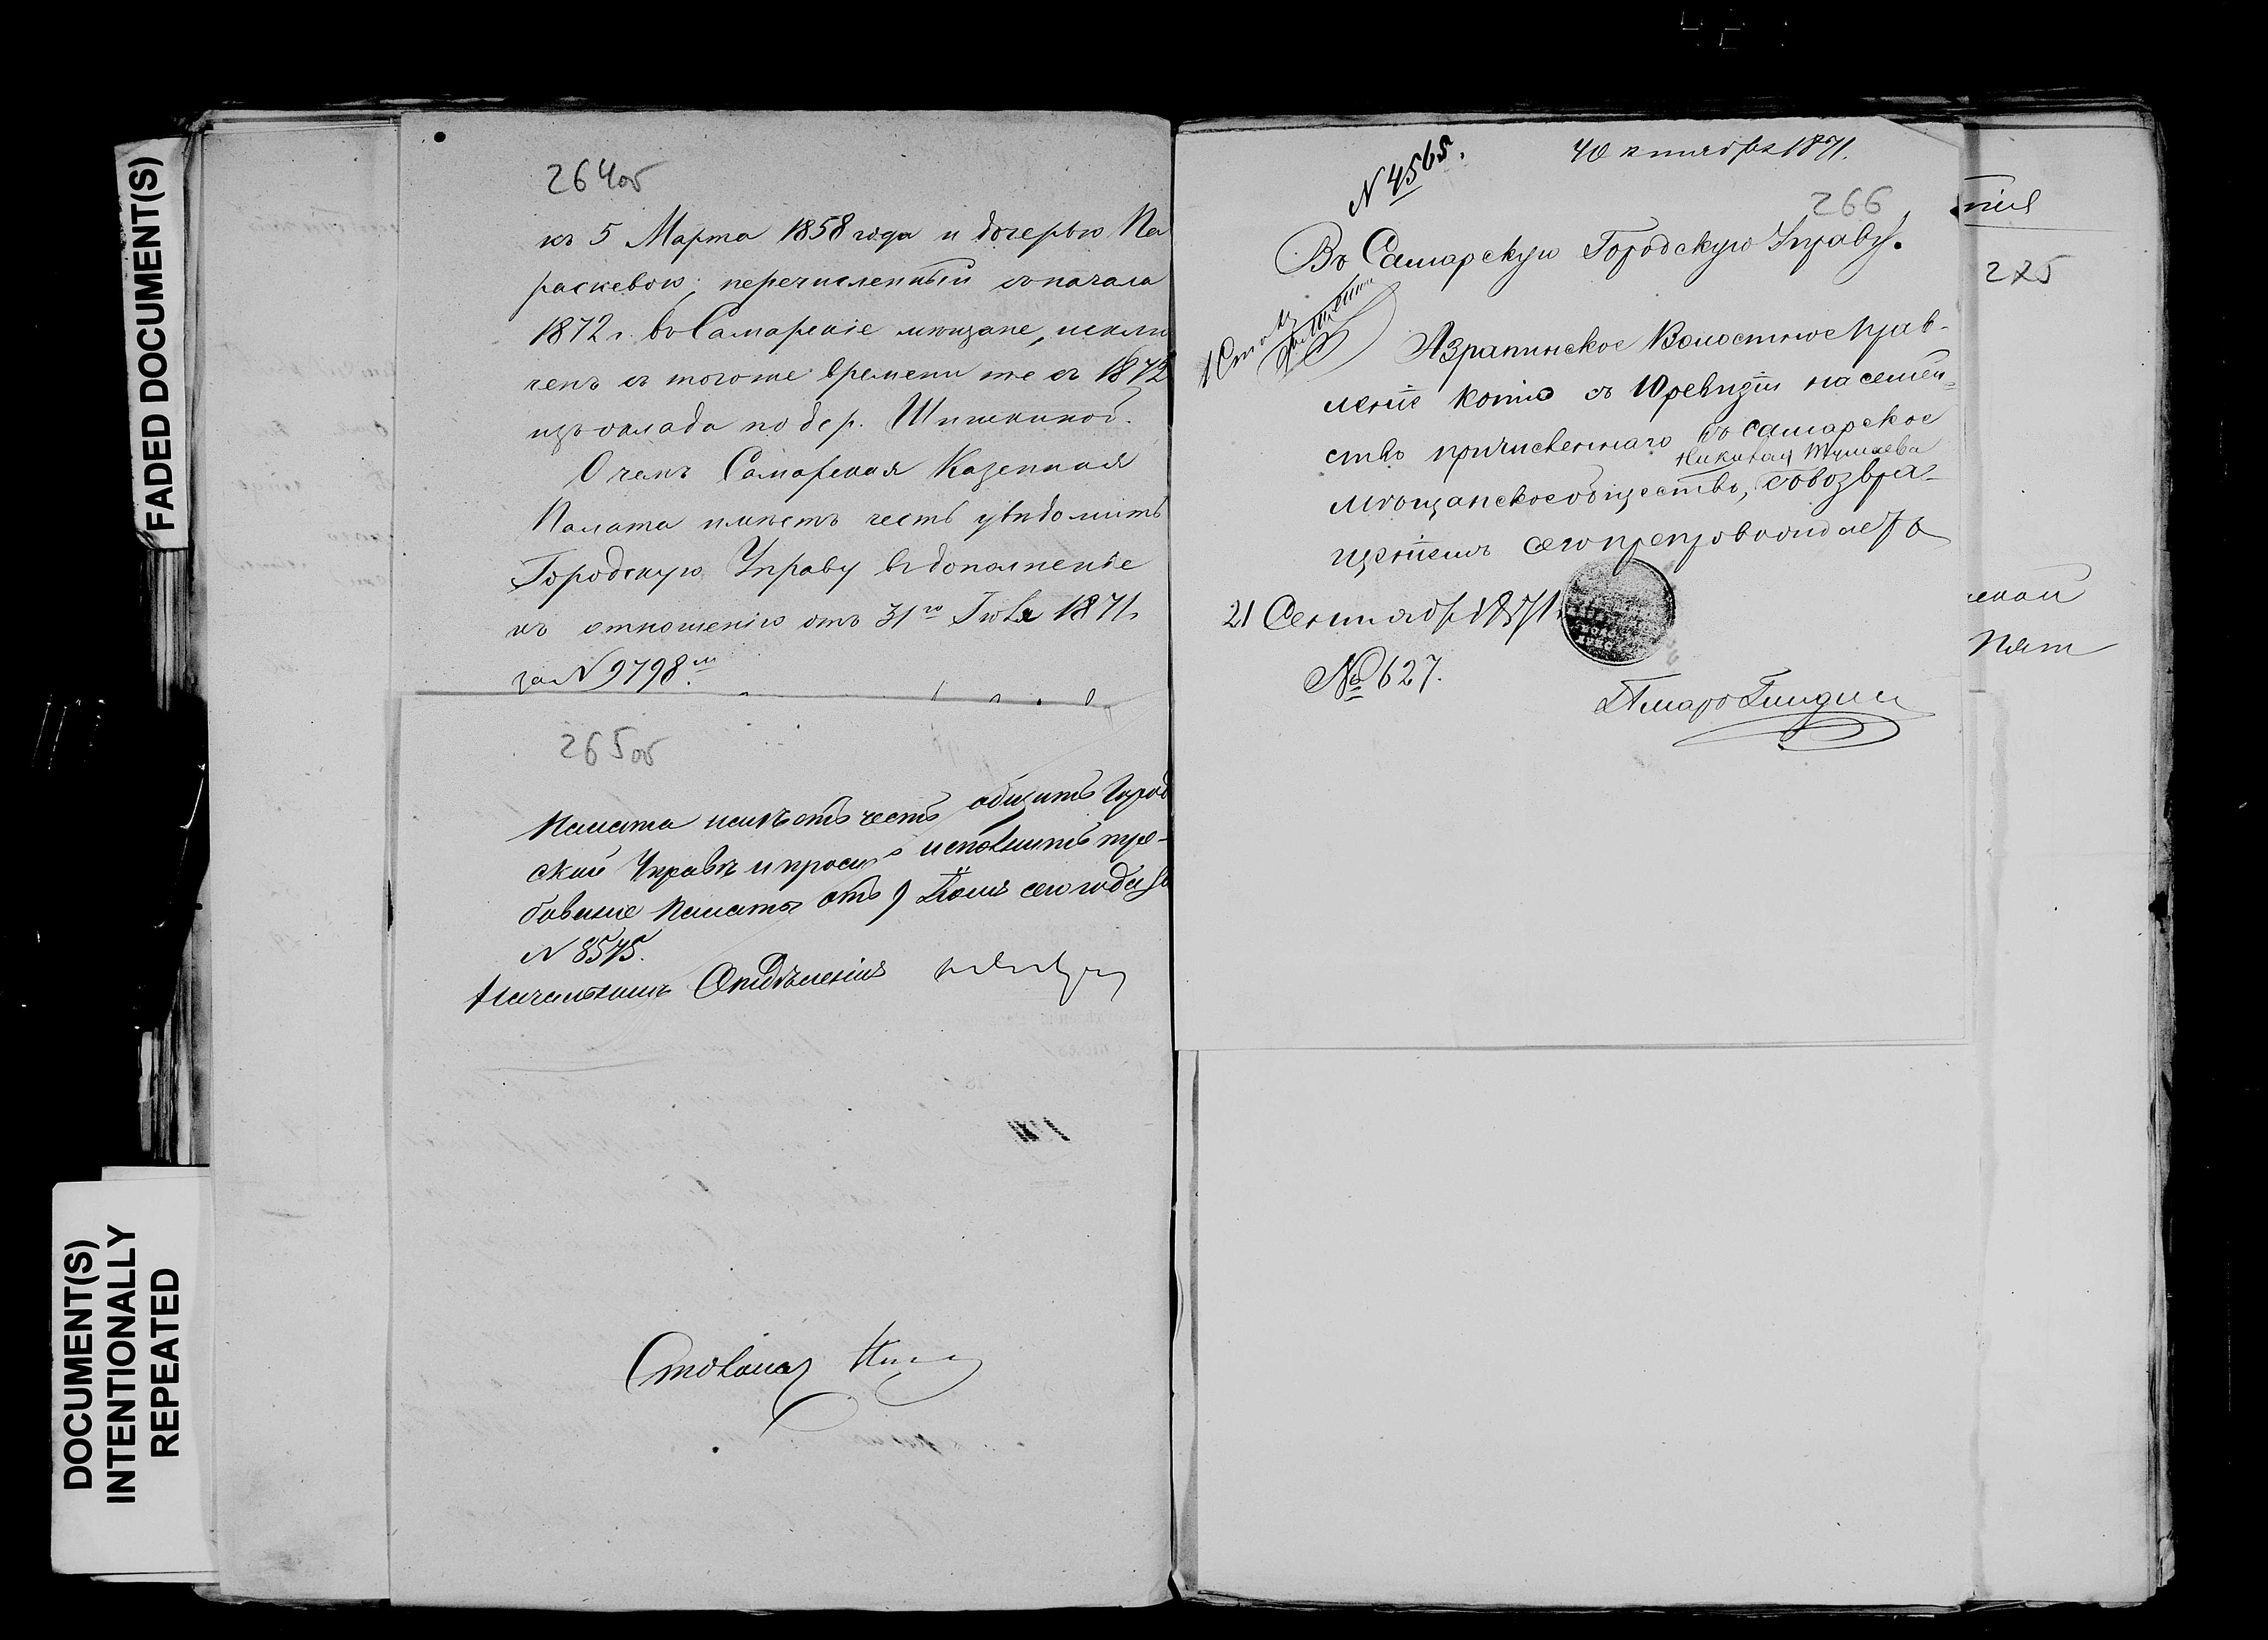 FADED DOCUMENT(S)
DOCUMENT(S)
INTENTIONALLY
REPEATED
264об
къ 5 Марта 1858 года и дочерью Па
раскевою; перечисленный съ начала
1872 г. въ Самарскіе мѣщане, исклю
ченъ съ тогоже времени т. е. съ 1872
изъ оклада по дер. Шишкиной.
О чемъ Самарская Казенная
Палата имѣетъ честь увѣдомить
Городскую Управу въ дополненіе
къ отношенію отъ 31го Іюля 1871 г.
за N 9798.м
265об
Палата имѣетъ честь общить Город
ской Управѣ и проситъ исполнить тре-
бованіе Палаты отъ 9 Іюля сего года за
N 8575.
Начальникъ Отдѣленія
N 4565.
4 октября 1871.
266
Въ Самарскую Городскую Управу.
1 Столъ
Азрапинское Волостное Прав-
леніе копію съ 10 ревизіи на семей-
ство причисленнаго въ Самарское
Никиты
мѣщанское общество, совозвра-
щеніемъ сего препровождаетъ
21 Сентября 1871 г.
№ 627.
тія
225
Пят